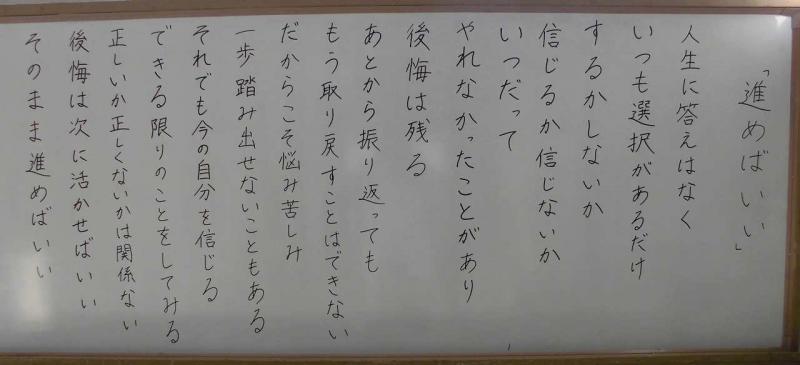 「進めばいい」
人生に答えはなく
いつも選択があるだけ
するかしないか
信じるか信じないか
いつだって
やれなかったことがあり
後悔は残る
あとから振り返っても
もう取り戻すことはできない
だからこそ悩み苦しみ
一歩踏み出せないこともある
それでも今の自分を信じる
できる限りのことをしてみる
正しいか正しくないかは関係ない
後悔は次に活かせばいい
そのまま進めばいい